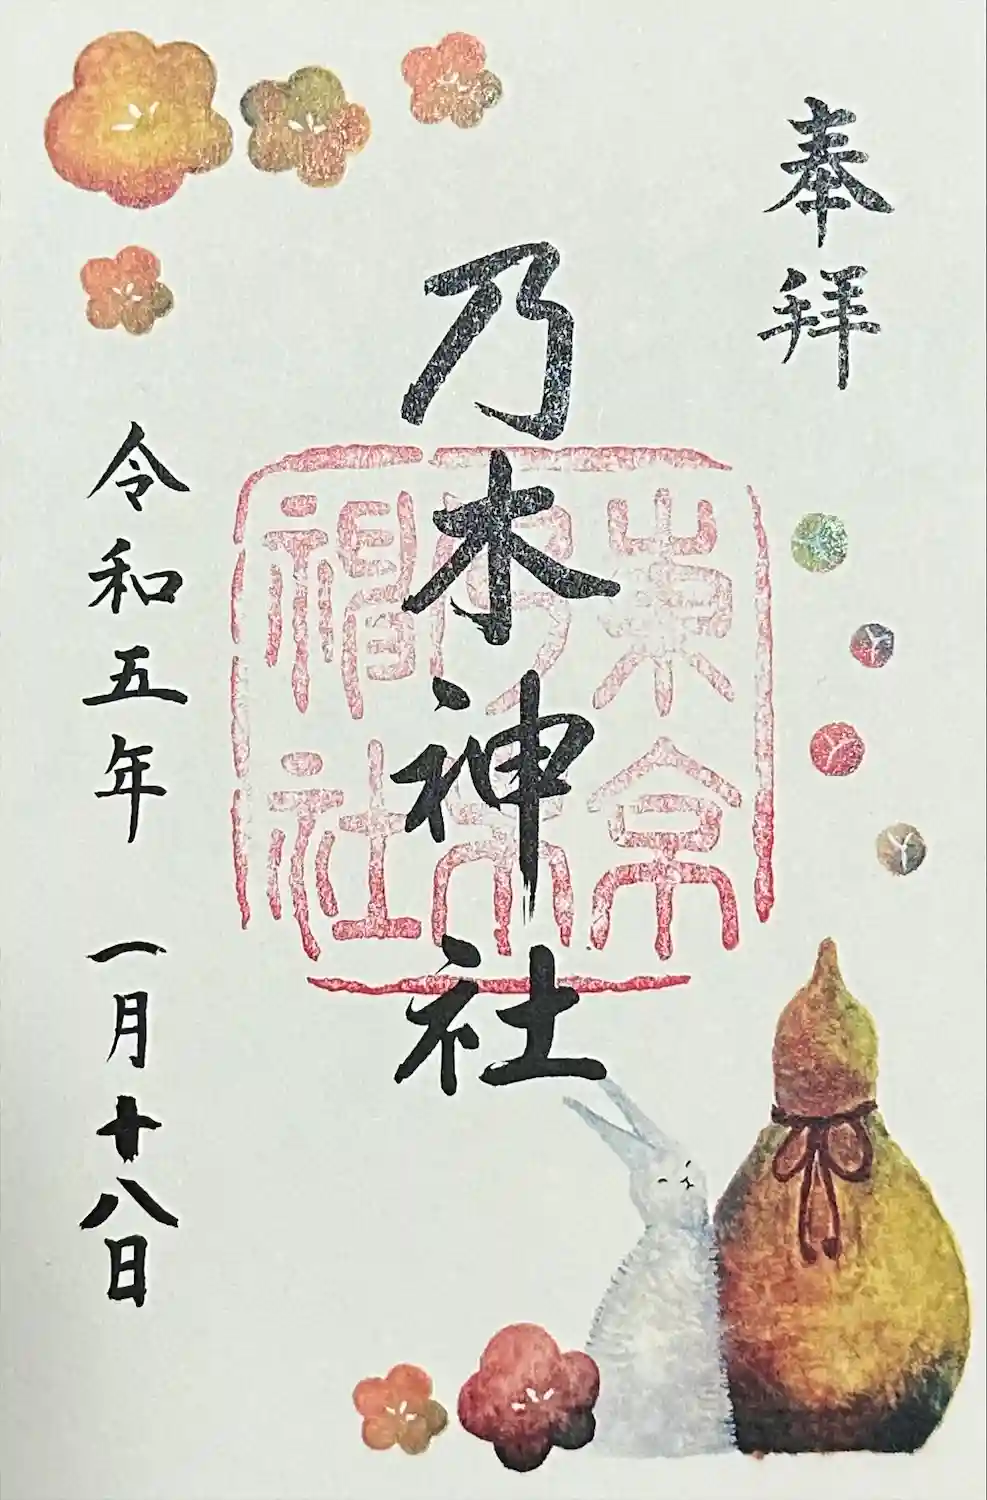 奉拝
乃木神社
東京
乃木
神社
令和五年 一月十八日